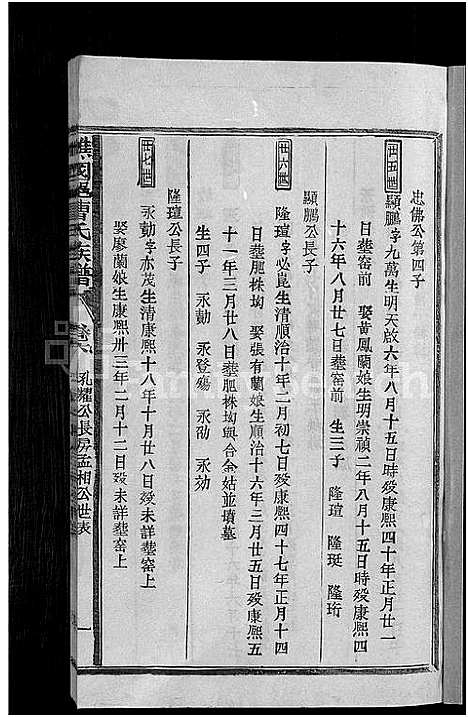 忠佛公第四子
廿五世
顯鵬字九萬生明天啟六年八月十五日時歿康熙四十年正月廿一
日葬窑前 娶黃鳳蘭娘生明崇禎二年八月十五日時歿康熙四
十六年八月廿七日葬窑前 生三子 隆瑄 隆珽 隆珩
顯鵬公長子
廿六世
隆瑄字必崑生清順治十年二月初七日歿康熙四十七年正月十四
日葬肥株㘭 娶張有蘭娘生順治十六年三月廿五日歿康熙五
十一年三月廿八日葬肥株㘭與合金姑並墳墓
生四子 永勷 永登殤 永劭 永効
隆瑄公長子
廿七世
永勷字亦茂生清康熙十八年十月廿八日歿未詳葬窑上
娶廖蘭娘生康熙卅三年二月十二日歿未詳葬窑上
譙國郡曹氏族譜 卷 孔耀公長房孟相公世表 一